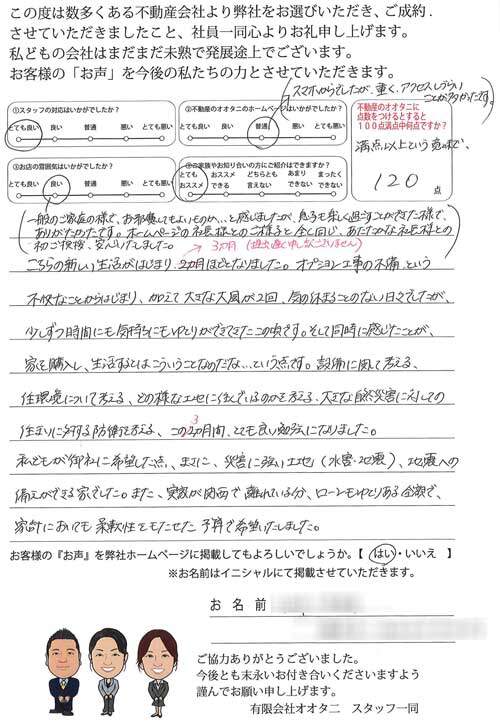 この度は数多くある不動産会社より弊社をお選びいただき、ご成約.
させていただきましたこと、社員一同心よりお礼申し上げます。
私どもの会社はまだまだ未熟で発展途上でございます。
お客様の「お声」を今後の私たちの力とさせていただきます。
スマホからでしたが、重く、アクセスしづらい
ことが多かったです
①スタッフの対応はいかがでしたか?
とても良い 良い 普通 悪い とても悪い
②不動産のオオタニのホームページはいかがでしたか?
とても良い 良い 普通 悪い とても悪い
不動産のオオタニに
点数をつけるとすると
100点満点中何点ですか?
満点以上という意味で、
120 点
③お店の雰囲気はいかがでしたか?
とても良い 良い 普通 悪い とても悪い
④ご家族やお知り合いの方にご紹介はできますか?
とても おススメ どちらとも あまり まったく
おススメ できる 言えない できない できない
一般のご家庭の様で、お邪魔してもよいものか…と感じましたが、息子も楽しく過ごすことができた様で、
ありがたかったです。ホームページの社長様とのご様子と全く同じ、あたたかな社長様との
初のご挨拶、安心いたしました。
→3カ月(提出遅く申し訳ございません)
こちらの新しい生活がはじまり、2カ月ほどとなりました。オプション工事の不備という
不快なことからはじまり、加えて大きな大風が2回、気の休まることのない日々でしたが、
少しずつ時間にも気持ちにもゆとりができてきたこの頃です。そして同時に感じたことが、
家を購入し、生活するとはこういうことなのだな…という点です。設備に関して考える、
住環境について考える、どの様な土地に住んでいるのかを考える、大きな自然災害に対しての
住まいに対する防備を考える、この3カ月間、とても良い勉強になりました。
私どもが御社に希望した点、まさに、災害に強い土地(水害・地震)、地震への
備えができる家でした。また、実家が関西で離れている分、ローンもゆとりある金額で、
家計においても柔軟性をもたせた予算で希望いたしました。
お客様の『お声』を弊社ホームページに掲載してもよろしいでしょうか。【 はい・いいえ 】
※お名前はイニシャルにて掲載させていただきます。
お 名 前
ご協力ありがとうございました。
今後とも末永いお付き合いくださいますよう
謹んでお願い申し上げます。
有限会社オオタニ スタッフ一同